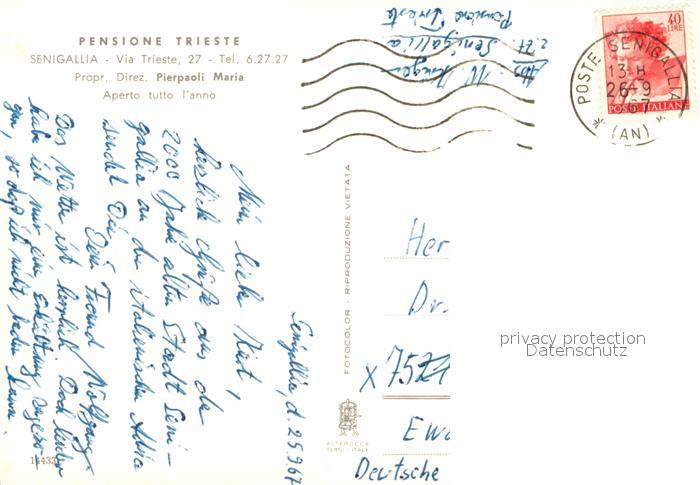 PENSIONE TRIESTE
SENIGALLIA - Via Trieste, 27 - Tel. 6.27.27
Propr. Direz. Pierpaoli Maria
Aperto tutto l'anno
Senigallia, d. 25.9.67
Mein lieber Kurt,
herzliche Grüße aus der
2000 Jahre alten Stadt Seni-
gallia an der italienischen Adria
sendet Dir
Dein Freund Wolfgang
Das Wetter ist herrlich. Doch leider
habe ich mir eine Erkältung zugezo-
gen, so daß ich nicht baden kann.
14433
FOTOCOLOR - RIPRODUZIONE VIETATA
ALTEROCCA
TERNI - ITALY
Abs. W. Krüger
z.Zt. Senigallia
Pensione Trieste
40
LIRE
POSTE ITALIANE
POSTE SENIGALLIA
13-H
26-9
67
(AN)
Her
Dr.
x 7524
Ewa
Deutsche
privacy protection
Datenschutz